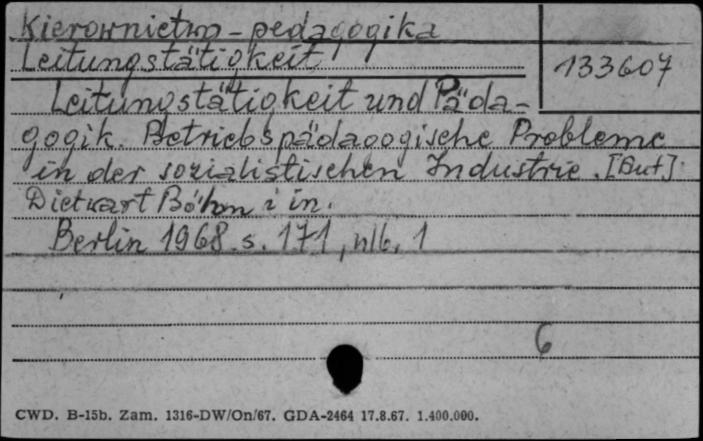 Kierownictwo - pedagogika
Leitungstätigkeit
133607
Leitungstätigkeit und Päda-
gogik. Betriebspädagogische Probleme
in der sozialistischen Industrie. [Aut]:
Dietkart Böhm i in.
Berlin 1968. s. 171, nlb. 1
6
CWD. B-15b. Zam. 1316-DW/On/67. GDA-2464 17.8.67. 1.400.000.